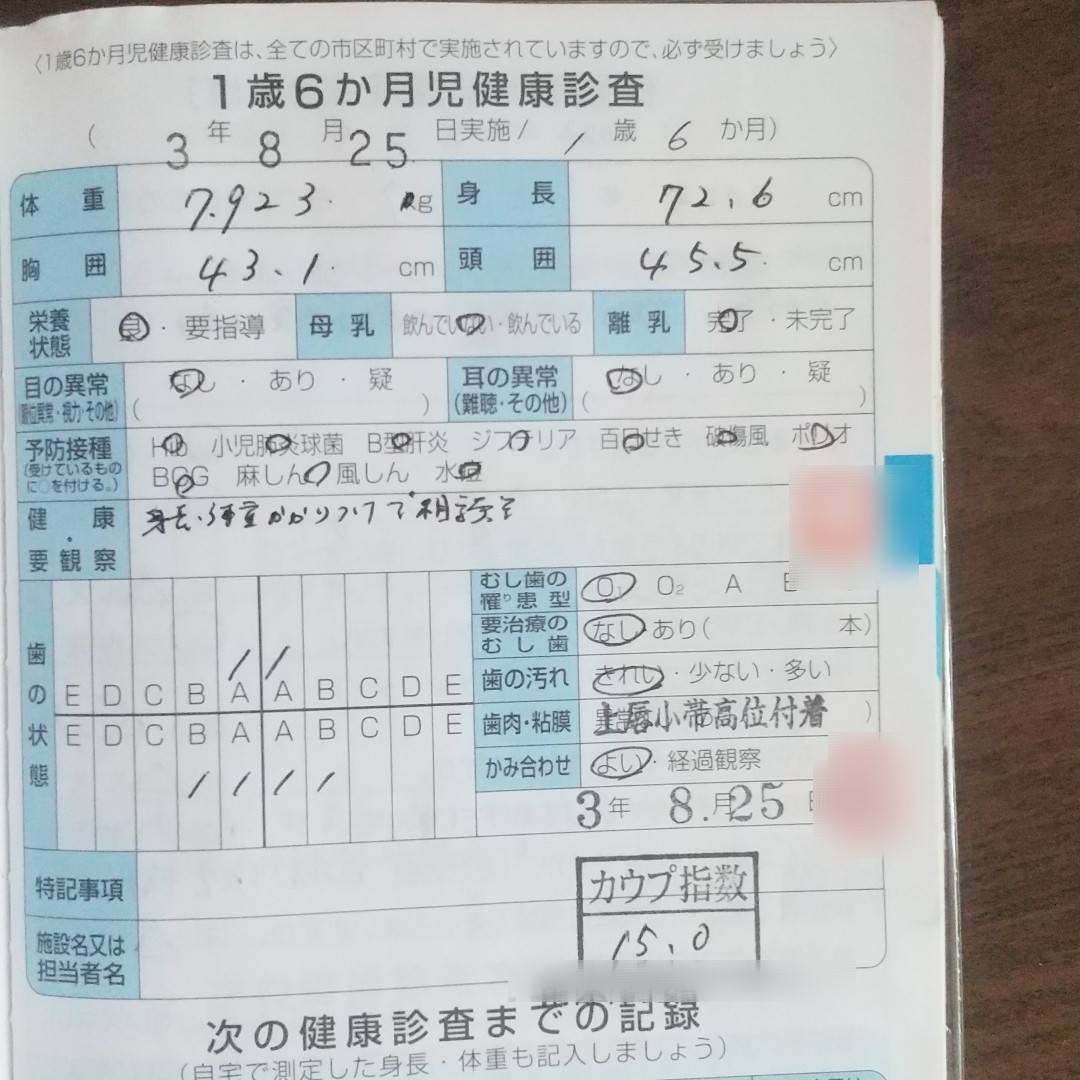 〈1歳6か月児健康診査は、全ての市区町村で実施されていますので、必ず受けましょう〉
1歳6か月児健康診査
( 3年 8月25日実施/ 1歳 6か月)
体重 7.923 kg 身長 72.6 cm
胸囲 43.1 cm 頭囲 45.5 cm
栄養状態 良・要指導 母乳 飲んでいない・飲んでいる 離乳 完了・未完了
目の異常 (眼位異常・視力・その他) なし・あり・疑 ( ) 耳の異常 (難聴・その他) なし・あり・疑 ( )
予防接種 (受けているものに○を付ける。) Hib 小児肺炎球菌 B型肝炎 ジフテリア 百日せき 破傷風 ポリオ
BCG 麻しん 風しん 水痘
健康・要観察 身長・体重かかりつけで相談を
歯の状態
E D C B A A B C D E
E D C B A A B C D E
むし歯の罹り患型 O1 O2 A
要治療のむし歯 なし あり( 本)
歯の汚れ きれい・少ない・多い
歯肉・粘膜 上唇小帯高位付着 )
かみ合わせ よい・経過観察
3年 8.月25
特記事項
カウプ指数
15.0
施設名又は担当者名
次の健康診査までの記録
(自宅で測定した身長・体重も記入しましょう)